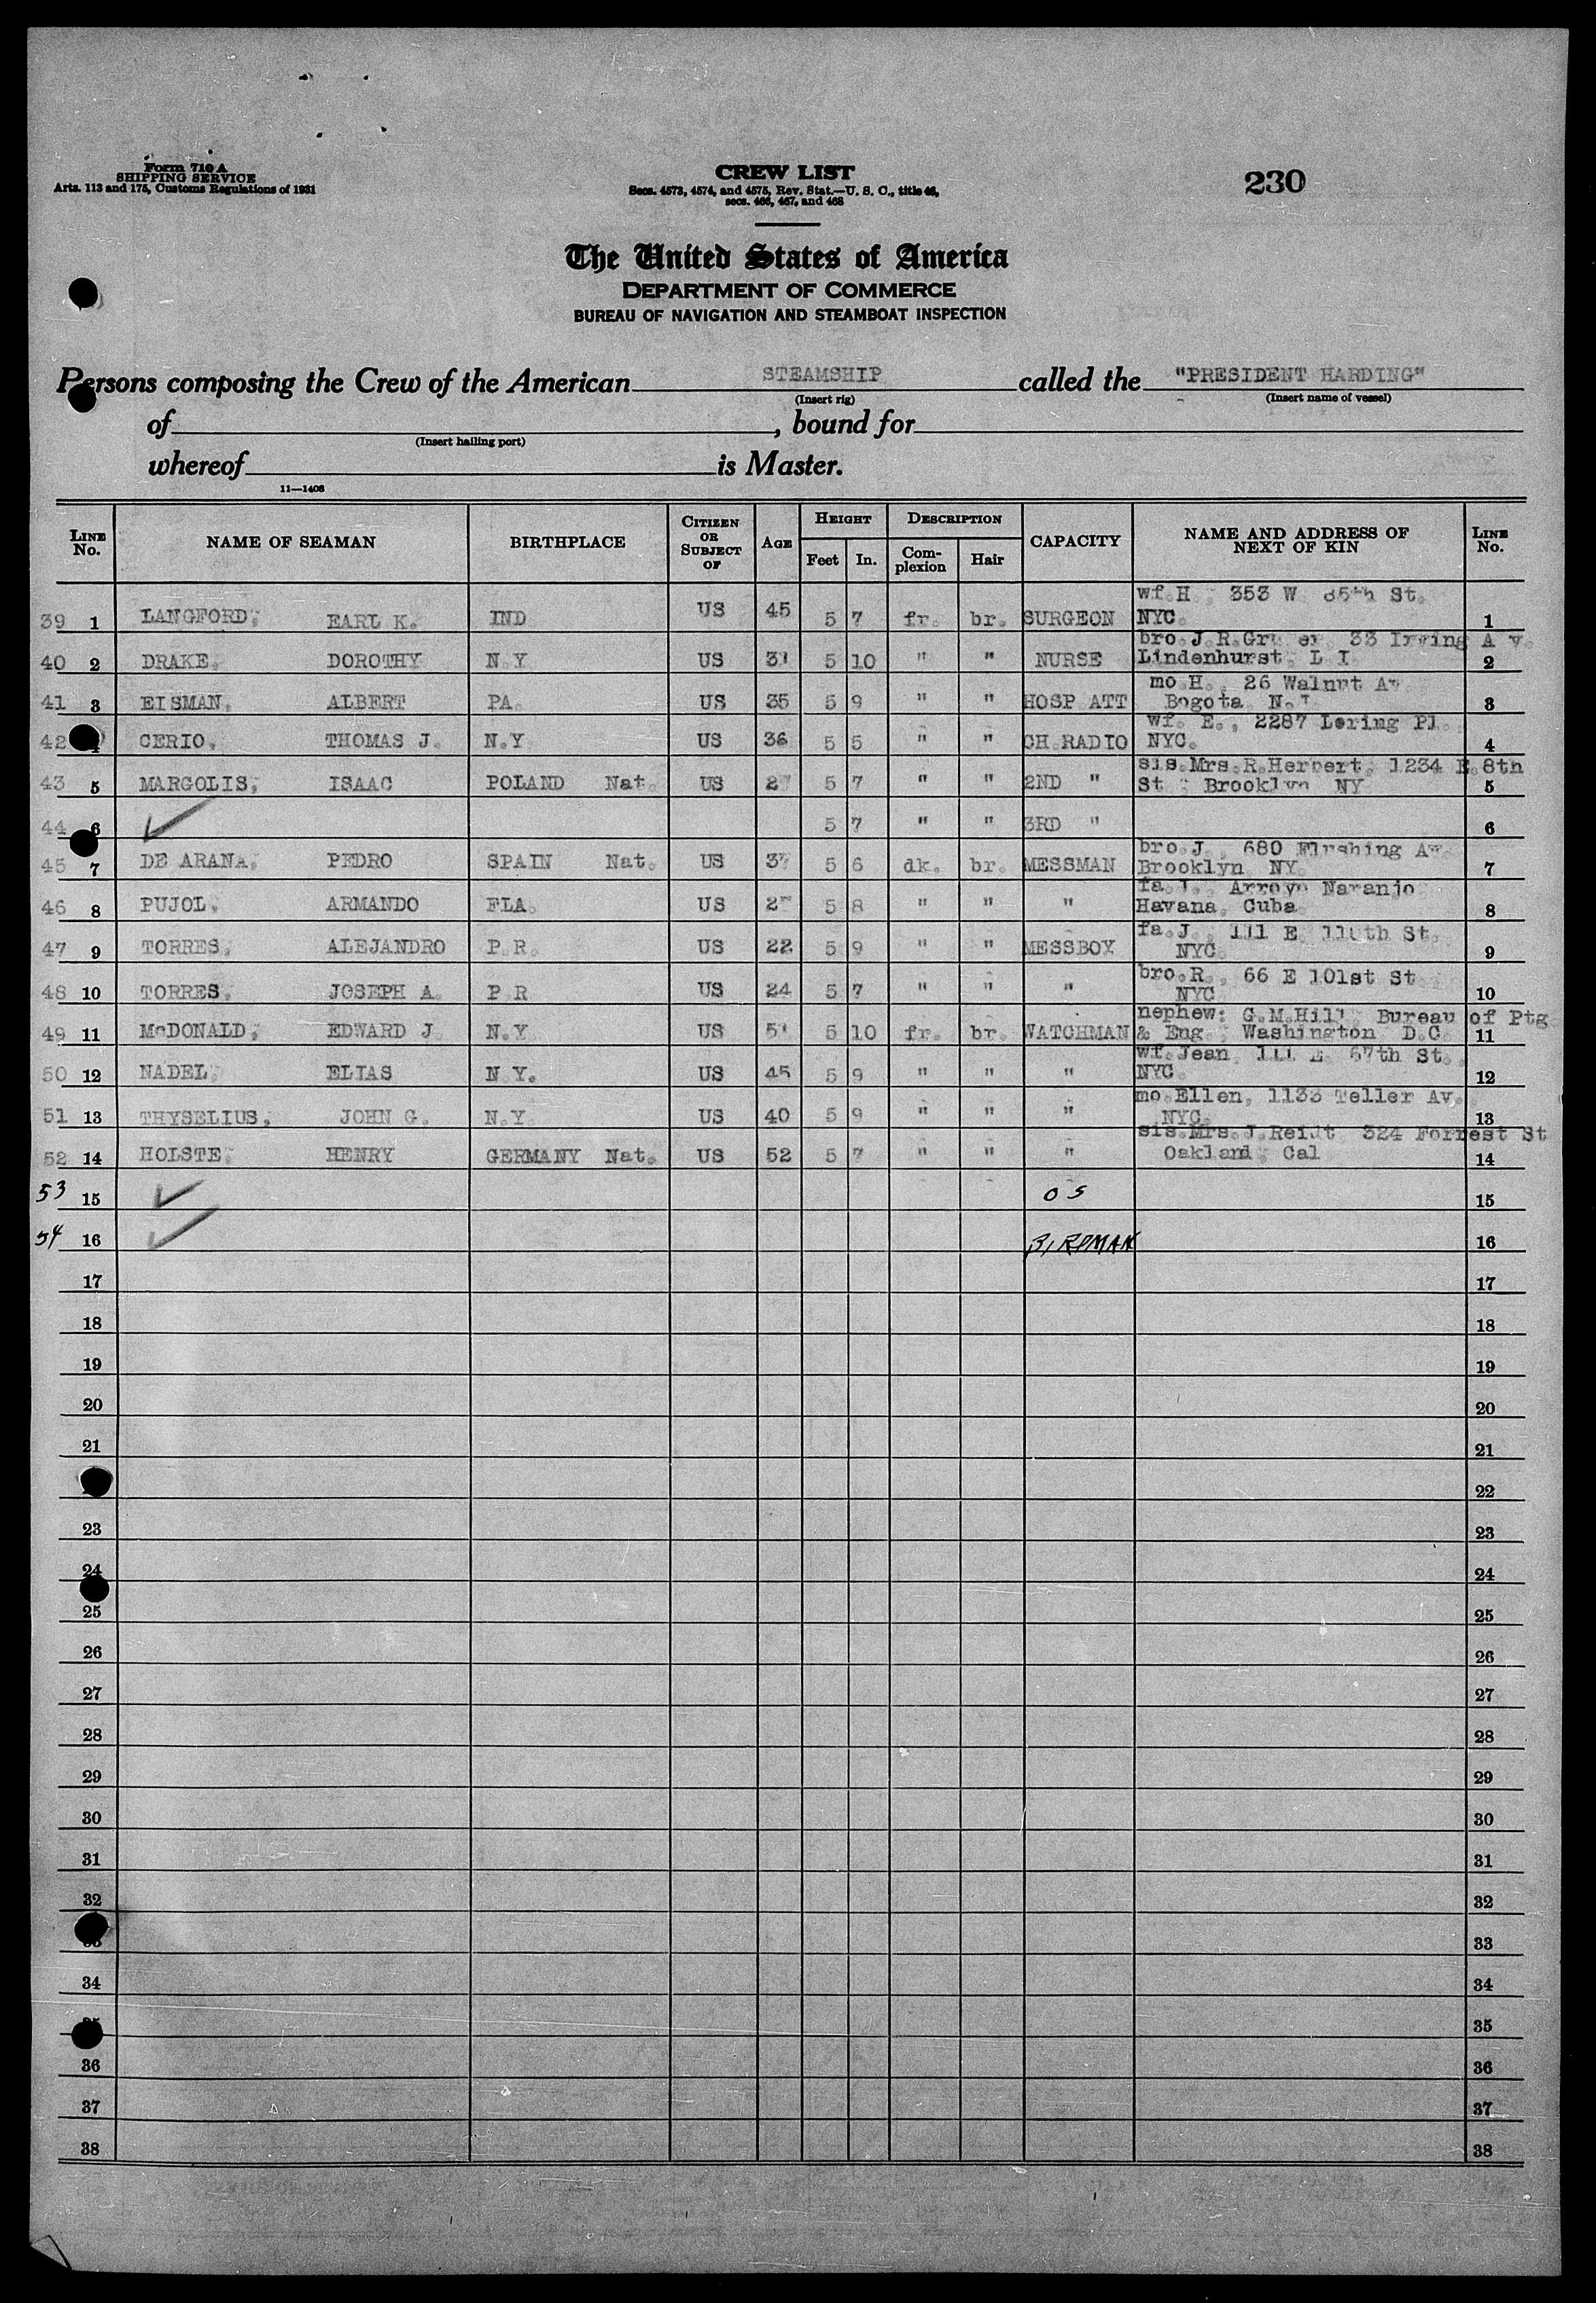 Form 710 A
SHIPPING SERVICE
Arts. 113 and 175, Customs Regulations of 1931
CREW LIST
Secs. 4573, 4574, and 4575, Rev. Stat.—U. S. C., title 46,
secs. 466, 467, and 468
230
The United States of America
DEPARTMENT OF COMMERCE
BUREAU OF NAVIGATION AND STEAMBOAT INSPECTION
Persons composing the Crew of the American STEAMSHIP called the "PRESIDENT HARDING"
(Insert rig) (Insert name of vessel)
of , bound for
(Insert hailing port)
whereof is Master.
11—1408
LINE No. NAME OF SEAMAN BIRTHPLACE CITIZEN OR SUBJECT OF AGE HEIGHT Feet In. DESCRIPTION Complexion Hair CAPACITY NAME AND ADDRESS OF NEXT OF KIN LINE No.
wf.H. 353 W 85th St.
39 1 LANGFORD, EARL K. IND US 45 5 7 fr. br. SURGEON NYC. 1
bro.J.R. 33 Irving Av.
40 2 DRAKE, DOROTHY N.Y US 5 10 " " NURSE Lindenhurst, L I 2
mo.H., 26 Walnut Av
41 3 EISMAN, ALBERT PA. US 35 5 9 " " HOSP ATT Bogota N.J 3
wf. E., 2287 Loring Pl.
42 4 CERIO, THOMAS J. N.Y US 36 5 5 " " CH.RADIO NYC. 4
sis.Mrs.R.Herbert, 1234 E.8th
43 5 MARGOLIS, ISAAC POLAND Nat. US 5 7 " " 2ND " St., Brooklyn NY 5
44 6 5 7 " " 3RD " 6
bro.J., 680 Flushing Av
45 7 DE ARANA, PEDRO SPAIN Nat. US 5 6 dk. br. MESSMAN Brooklyn NY. 7
fa. Arroyo Naranjo
46 8 PUJOL, ARMANDO FLA. US 5 8 " " " Havana, Cuba 8
fa.J., 111 E 110th St.
47 9 TORRES, ALEJANDRO P.R. US 22 5 9 " " MESSBOY NYC. 9
bro.R., 66 E 101st St
48 10 TORRES, JOSEPH A. P R US 24 5 7 " " " NYC 10
nephew: G.M.Hill, Bureau of Ptg
49 11 McDONALD, EDWARD J. N.Y US 5 10 fr. br. WATCHMAN & Eng., Washington D.C. 11
wf.Jean, 111 E. 67th St.
50 12 NADEL, ELIAS N.Y. US 45 5 9 " " " NYC. 12
mo.Ellen, 1133 Teller Av.
51 13 THYSELIUS, JOHN G. N.Y. US 40 5 9 " " " NYC. 13
sis.Mrs.J.Reidt 324 Forrest St
52 14 HOLSTE, HENRY GERMANY Nat. US 52 5 7 " " " Oakland, Cal 14
53 15 O S 15
54 16 BIRDMAN 16
17 17
18 18
19 19
20 20
21 21
22
23 23
24 24
25 25
26 26
27 27
28 28
29 29
30 30
31 31
32 32
33 33
34 34
35 35
36 36
37 37
38 38